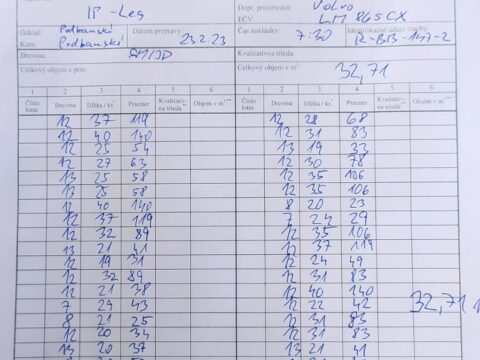 IP-Les
Dopr. prostriedok: Volvo
EČV: LM 865CX
Odkiaľ: Podbanské
Dátum prepravy: 23.2.23
Čas nakládky: 7:30
R-BB-147-2
Kam: Podbanské
Drevina
Kvalitatívna trieda:
Celkový objem v prm:
Celkový objem v m³: 32,71
1 2 3 4 5 6 1 2 3 4 5 6
Číslo kusa Drevina Dĺžka / ks Priemer Kvalitatív- na trieda Objem v m³ Číslo kusa Drevina Dĺžka / ks Priemer Kvalitatív- na trieda Objem v m³
12 37 119 12 28 68
12 40 140 12 31 83
12 25 54 13 19 33
12 27 63 12 30 78
13 25 58 12 35 106
25 58 12 35 106
12 40 140 8 20 23
12 37 119 7 24 29
12 32 89 12 35 106
13 21 41 12 37 119
12 19 31 12 24 49
12 32 89 12 31 83
12 21 38 12 40 140
7 24 43 12 22 42 32,71
8 21 25 12 31 83
12 20 34 12 31 83
13 20 37 13 21 41